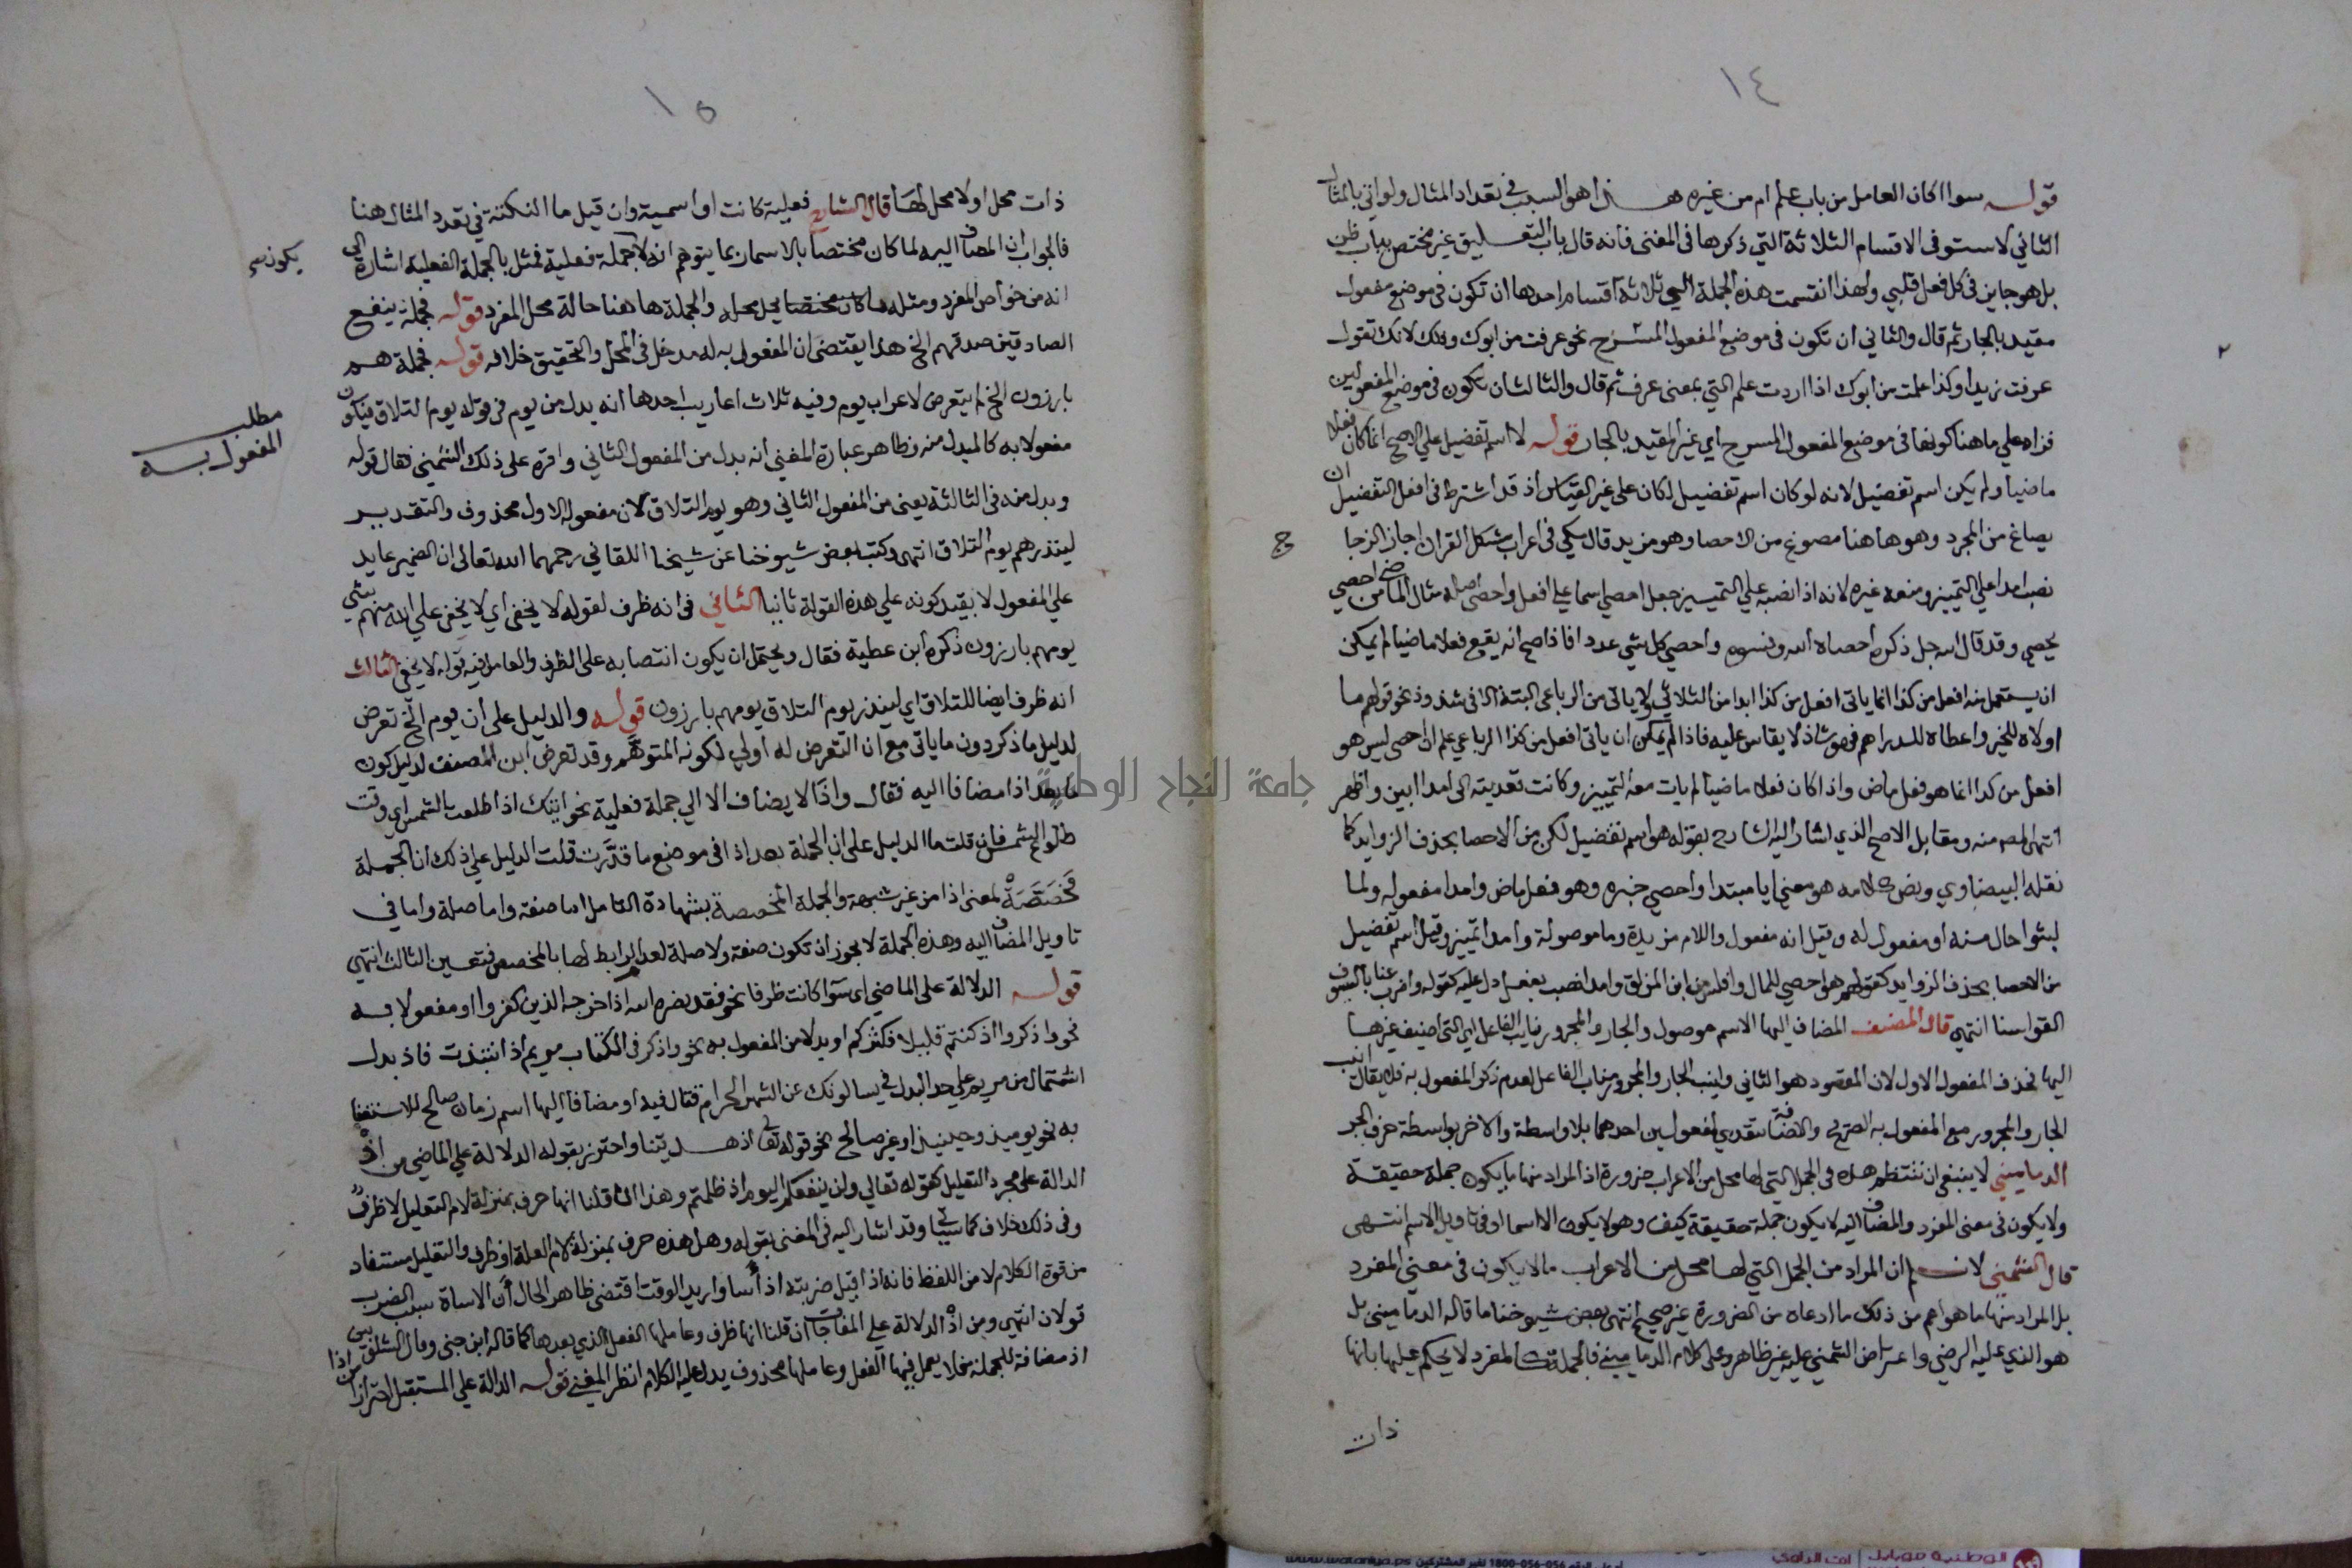 ١٤
قوله سوا اكان العامل من باب علم ام من غيره هذا هو السبب في تعداد المثال ولو اتي بالمثال
الثاني لاستوفى الاقسام الثلاثة التي ذكرها في المغني فانه قال باب التعليق غير مختص بباب ظن
بل هو جايز في كل فعل قلبي ولهذا انقسمت هذه الجملة الي ثلاثة اقسام احدها ان تكون في موضع مفعول
مقيد بالجار ثم قال والثاني ان تكون في موضع المفعول المسرح نحو عرفت من ابوك وذلك لانك تقول
عرفت زيدا وكذا علمت من ابوك اذا اردت علم التي بمعنى عرف ثم قال والثالث ان تكون في موضع المفعولين
فزاد علي ما هنا كونها في موضع المفعول المسرح اي غير المقيد بالجار قوله لا اسم تفضيل علي الاصح انما كان فعلا
ماضيا ولم يكن اسم تفضيل لانه لو كان اسم تفضيل لكان على غير القياس اذ قد اشترط في افعل التفضيل ان
يصاغ من المجرد وهو هاهنا مصوغ من الاحصا وهو مزيد قال مكي في اعراب مشكل القران اجاز الزجاج
نصب امدا علي التمييز ومنعه غيره لانه اذا نصبه علي التمييز جعل احصي اسما علي افعل واحصى اصله مثال الماضي من احصي
يحصي وقد قال الله جل ذكره احصاه الله ونسوه واحصي كل شي عددا فاذا صح انه يقع فعلا ماضيا لم يمكن
ان يستعمل منه افعل من كذا انما ياتي افعل من كذا ابدا من الثلاثي ولا ياتي من الرباعي البتة الا في شذوذ نحو قولهم ما
اولاه للخير واعطاه للدراهم فهو شاذ لا يقاس عليه فاذا لم يمكن ان ياتي افعل من كذا الرباعي علم ان احصى ليس هو
افعل من كذا انما هو فعل ماض واذا كان فعلا ماضيا لم يات معه التمييز وكانت تعديته الى امدا ابين واظهر
انتهى منه ومقابل الاصح الذي اشار اليه الشارح بقوله هو اسم تفضيل لكن من الاحصا بحذف الزوايد كما
نقله البيضاوي ونص كلامه هو معني ايا مبتدا واحصي خبره وهو فعل ماض وامدا مفعوله ولما
لبثوا حال منه او مفعول له وقيل انه مفعول واللام مزيدة وما موصولة وامدا تمييز وقيل اسم تفضيل
من الاحصا بحذف الزوايد كقولهم هو احصي للمال وافلس من ابن المزلق وامدا نصب بفعل دل عليه كقوله واضرب عنا بالسيوف
القوانسا انتهي قال المصنف المضاف اليها الاسم موصول والجار والمجرور نايب الفاعل اي التي اضيف غيرها
اليها فحذف المفعول الاول لان المقصود هو الثاني وانيب الجار والمجرور مناب الفاعل لعدم ذكر المفعول به فلا يقال انيب
الجار والمجرور مع المفعول به الصريح والاضافة تتعدي لمفعولين احدهما بلا واسطة والاخر بواسطة حرف الجر
الدماميني لا ينبغي ان تنتظم هذه في الجمل التي لها محل من الاعراب ضرورة اذ المراد منها ما يكون جملة حقيقة
ولا يكون في معنى المفرد والمضاف اليه لا يكون جملة حقيقة كيف وهو لا يكون الا اسما او في تاويل الاسم انتهى
قال الشمني لا نسلم ان المراد من الجمل التي لها محل من الاعراب ما لا يكون في معني المفرد
بل المراد منها ما هو اعم من ذلك ما ادعاه من الضرورة غير صحيح انتهي بعض شيوخنا ما قاله الدماميني بل
هو الذي عليه الرضي واعتراض الشمني عليه غير ظاهر وعلى كلام الدماميني فالجملة المفرد لا يحكم عليها بانها
ذات
ج
٢
١٥
ذات محل او لا محل لها قال الشارح فعلية كانت او اسمية وان قيل ما النكتة في تعدد المثال هنا
فالجواب ان المضاف اليه لما كان مختصا بالاسما ربما يتوهم انه لا جملة فعلية فمثل بالجملة الفعلية اشارة الى
انه من خواص المفرد ومثله ما كان مختصا يحل محله والجملة هاهنا حالة محل المفرد قوله فجملة ينفع
الصادقين صدقهم الخ هذا يقتضي ان المفعول به له مدخل في المحل والتحقيق خلافه قوله فجملة هم
بارزون الخ لم يتعرض لاعراب يوم وفيه ثلاث اعاريب احدها انه بدل من يوم في قوله يوم التلاق فيكون
مفعولا به كالمبدل منه وظاهر عبارة المغني انه بدل من المفعول الثاني واقره على ذلك الشمني فقال قوله
وبدل منه في الثالثة يعني من المفعول الثاني وهو يوم التلاق لان مفعوله الاول محذوف والتقدير
لينذرهم يوم التلاق انتهى وكتب بعض شيوخنا عن شيخنا اللقاني رحمهما الله تعالى ان الضمير عايد
على المفعول لا بقيد كونه علي هذه القولة ثانيا الثاني في انه ظرف لقوله لا يخفى اي لا يخفى علي الله منهم شي
يومهم بارزون ذكره ابن عطية فقال ويحتمل ان يكون انتصابه على الظرف والعامل فيه قوله لا يخفى الثالث
انه ظرف ايضا للتلاق اي لينذر يوم التلاق يومهم بارزون قوله والدليل على ان يوم الخ تعرض
لدليل ما ذكر دون ما ياتي مع ان التعرض له اولي لكونه المتوهم وقد تعرض ابن المصنف لدليل كون
ما بعد اذا مضافا اليه فقال واذا لا يضاف الا الي جملة فعلية نحو اتيتك اذا طلعت الشمس اي وقت
طلوع الشمس فان قلت ما الدليل على ان الجملة بعد اذا في موضع ما قدرت قلت الدليل على ذلك ان الجملة
مخصصة لمعنى اذا من غير شبهة والجملة المخصصة بشهادة التامل اما صفة واما صلة واما في
تاويل المضاف اليه وهذه الجملة لا يجوز ان تكون صفة ولا صلة لعدم الرابط لها بالمخصص فتعين الثالث انتهي
قوله الدلالة على الماضي اي سوا كانت ظرفا نحو فقد نصره الله اذ اخرجه الذين كفروا او مفعولا به
نحو واذكروا اذ كنتم قليلا فكثركم او بدلا من المفعول به نحو واذكر في الكتاب مريم اذ انتبذت فاذ بدل
اشتمال من مريم علي حد البدل في يسالونك عن الشهر الحرام قتال فيه او مضافا اليها اسم زمان صالح للاستغنا
به نحو يوميذ وحينيذ او غير صالح نحو قوله تعالى اذ هديتنا واحترز بقوله الدلالة علي الماضي من اذ
الدالة على مجرد التعليل كقوله تعالي ولن ينفعكم اليوم اذ ظلمتم وهذا ان قلنا انها حرف بمنزلة لام التعليل لا ظرف
وفي ذلك خلاف كما سيا وقد اشار اليه في المغني بقوله وهل هذه حرف بمنزلة لام العلة او ظرف والتعليل مستفاد
من قوة الكلام لا من اللفظ فانه اذا قيل ضربته اذ اسا واريد الوقت اقتضى ظاهر الحال ان الاساة سبب الضرب
قولان انتهي ومن اذ الدلالة علي المفاجات ان قلنا انها ظرف وعاملها الفعل الذي بعدها كما قاله ابن جني وقال الشلوبين
اذ مضافة للجملة فلا يعمل فيها الفعل وعاملها محذوف يدل عليه الكلام انظر المغني قوله الدالة علي المستقبل احترازا من اذا
مطلب
المفعول به
جامعة النجاح الوطنية
الوطنية موبايل
www.wataniya.ps
1800-056-056 لغير المشتركين